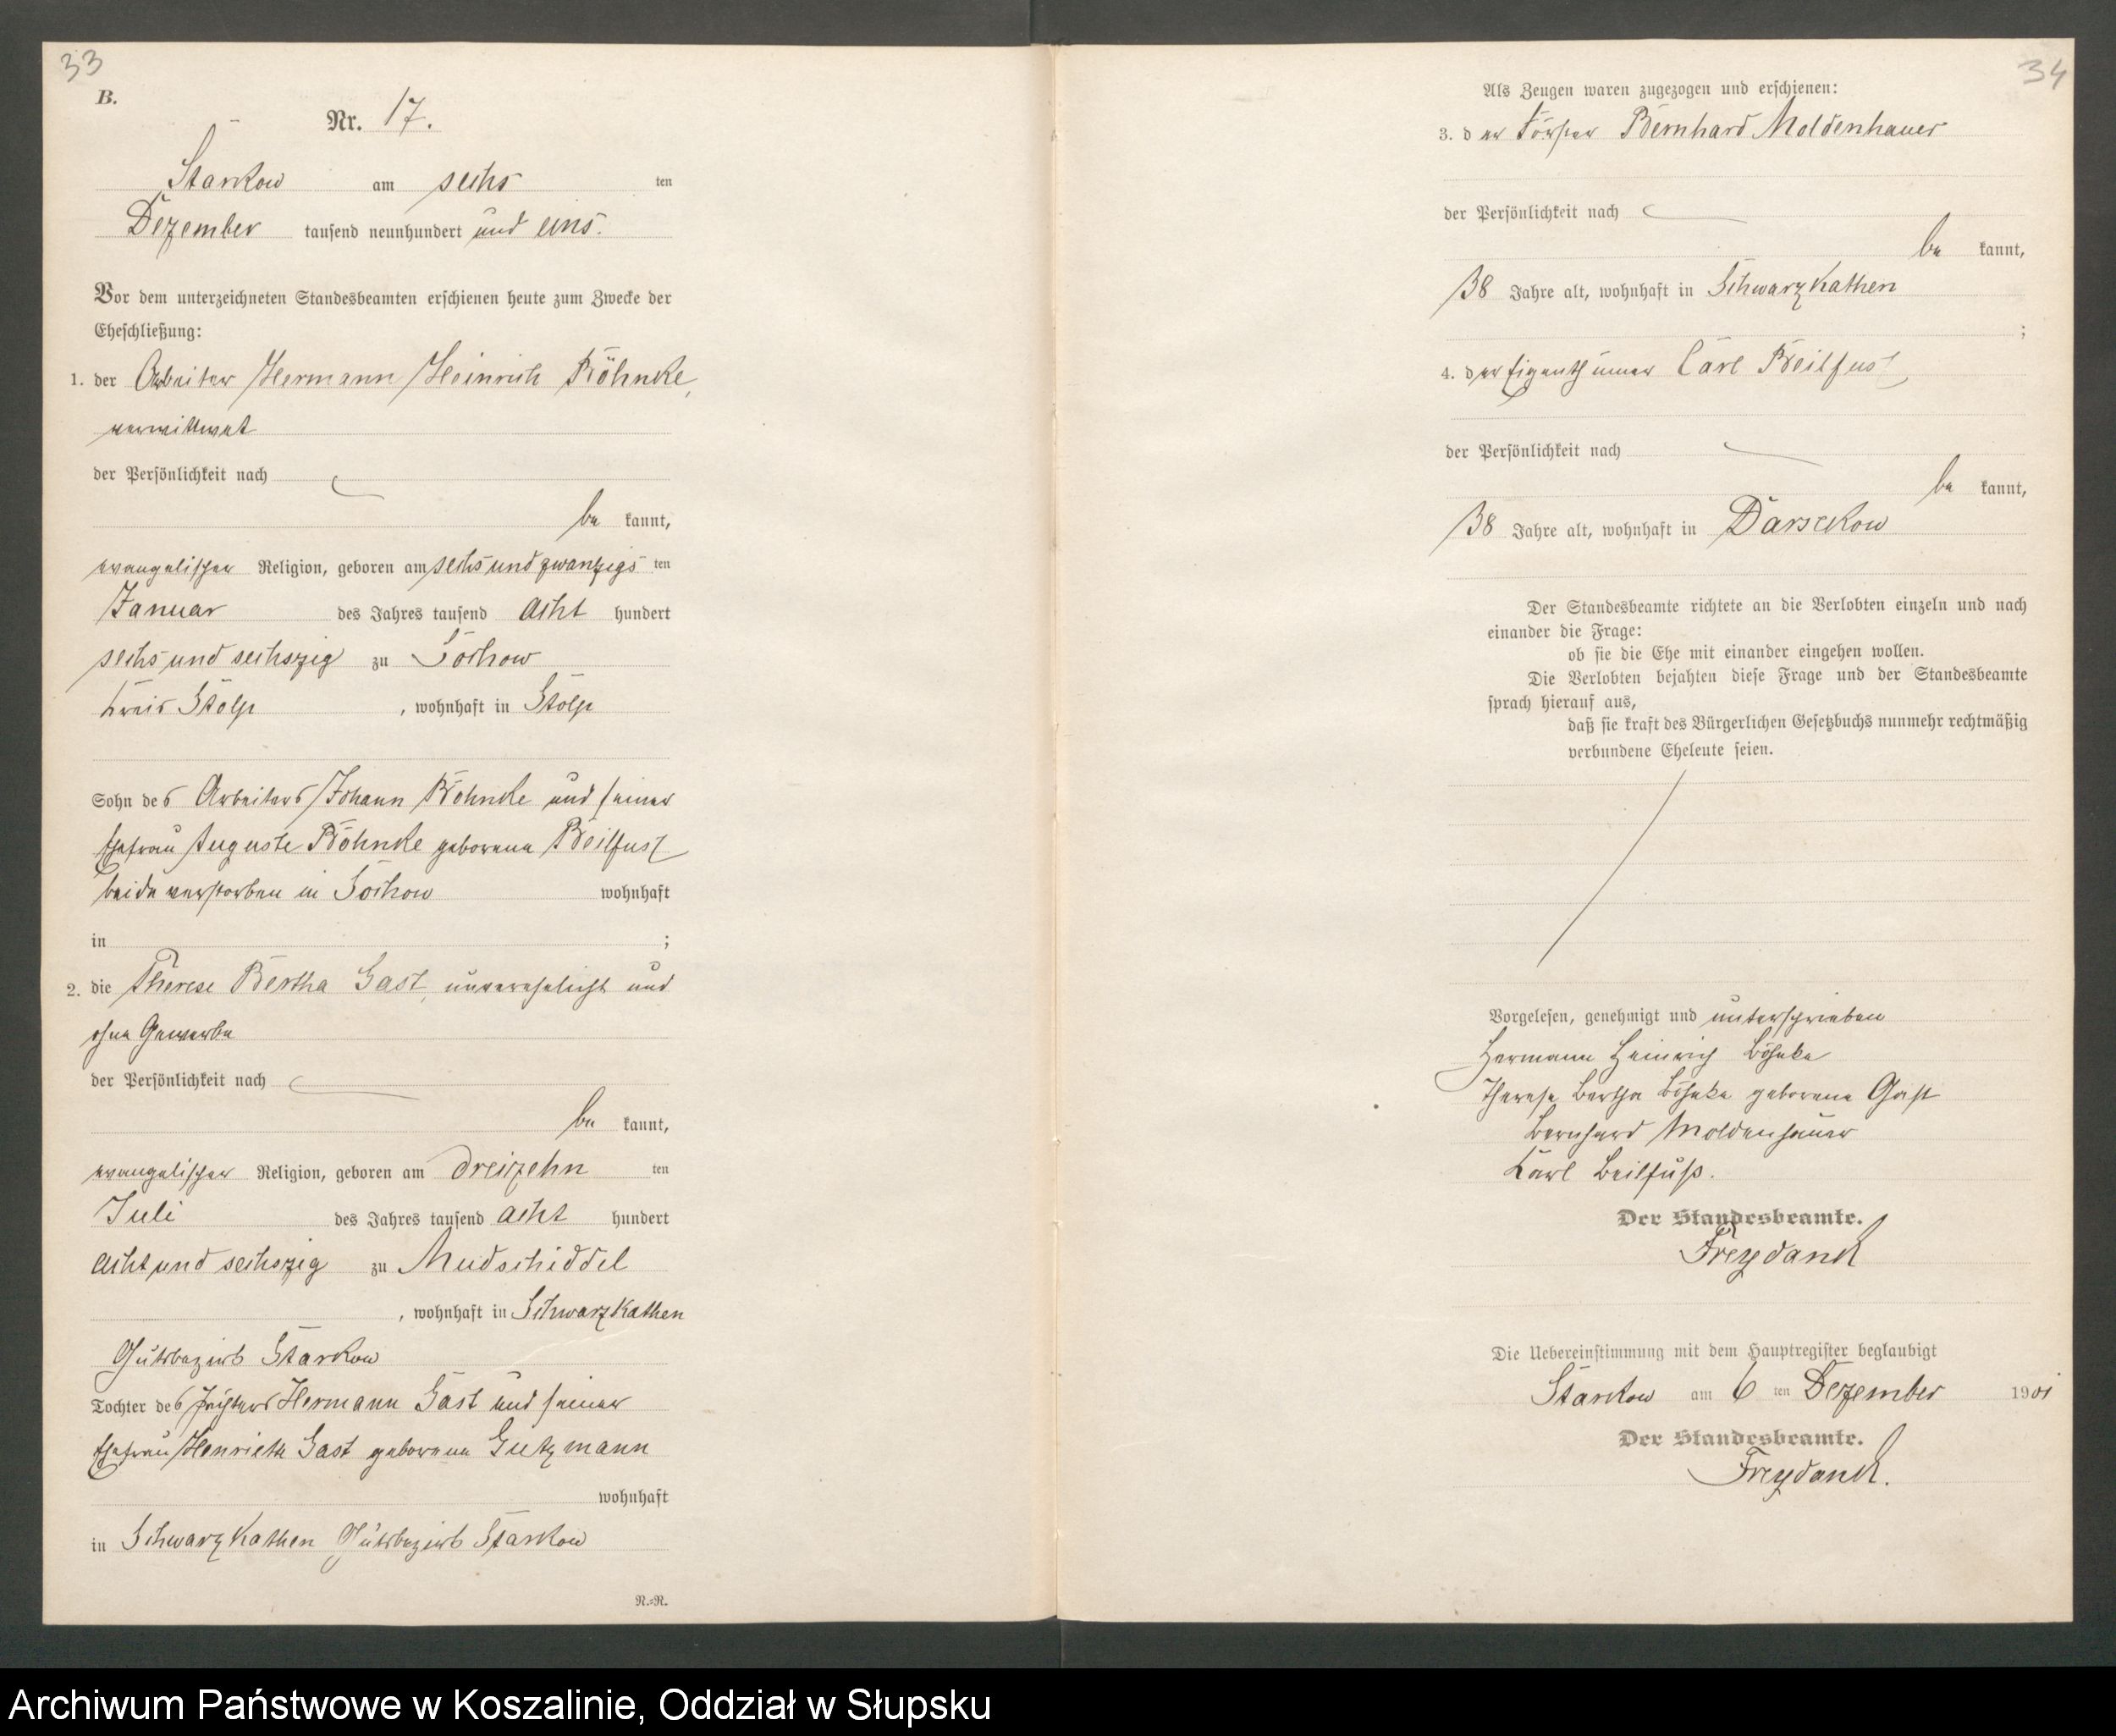 33
B.
Nr. 17.
Starkow am sechs ten
Dezember tausend neunhundert und eins.
Vor dem unterzeichneten Standesbeamten erschienen heute zum Zwecke der
Eheschließung:
1. der Arbeiter Hermann Heinrich Böhncke,
verwittwet
der Persönlichkeit nach
be kannt,
evangelischer Religion, geboren am sechs und zwanzigs ten
Januar des Jahres tausend acht hundert
sechs und sechszig zu Gochow
Kreis Stolp, wohnhaft in Stolp
Sohn des Arbeiters Johann Böhncke und seiner
Ehefrau Auguste Böhncke geborene Beilfus
beide verstorben in Gochow wohnhaft
in ;
2. die Therese Bertha Gast, unverehelicht und
ohne Gewerbe
der Persönlichkeit nach
be kannt,
evangelischer Religion, geboren am dreizehn ten
Juli des Jahres tausend acht hundert
acht und sechszig zu Mudschiddel
, wohnhaft in Schwarzkathen
Gutsbezirk Starkow
Tochter des Hermann Gast und seiner
Ehefrau Henriette Gast geborene Gutzmann
wohnhaft
in Schwarzkathen Gutsbezirk Starkow
N.=N.
34
Als Zeugen waren zugezogen und erschienen:
3. der Förster Bernhard Moldenhauer
der Persönlichkeit nach
be kannt,
38 Jahre alt, wohnhaft in Schwarzkathen
;
4. der Eigenthümer Carl Beilfus
der Persönlichkeit nach
be kannt,
38 Jahre alt, wohnhaft in Darsekow
Der Standesbeamte richtete an die Verlobten einzeln und nach
einander die Frage:
ob sie die Ehe mit einander eingehen wollen.
Die Verlobten bejahten diese Frage und der Standesbeamte
sprach hierauf aus,
daß sie kraft des Bürgerlichen Gesetzbuchs nunmehr rechtmäßig
verbundene Eheleute seien.
Vorgelesen, genehmigt und unterschrieben
Hermann Heinrich Böhnke
Therese Bertha Böhnke geborene Gast
Bernhard Moldenhauer
Karl Beilfuß.
Der Standesbeamte.
Freydank
Die Uebereinstimmung mit dem Hauptregister beglaubigt
Starkow am 6 ten Dezember 1901
Der Standesbeamte.
Freydank.
Archiwum Państwowe w Koszalinie, Oddział w Słupsku